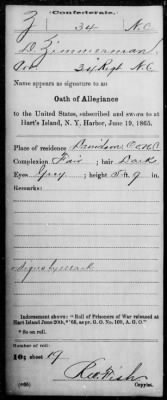 Confederate.
Z 34 N.C.
D. Zimmerman
Pvt 34 Regt N.C.
Name appears as signature to an
Oath of Allegiance
to the United States, subscribed and sworn to at
Hart's Island, N. Y. Harbor, June 19, 1865.
Place of residence Davidson Co NC
Complexion Fair ; hair Dark
Eyes Grey ; height 5 ft. 9 in.
Remarks:
Signs by mark
Indorsement above "Roll of Prisoners of War released at
Hart Island June 20th, '65, as pr. G. O. No. 109, A. G. O."
* So on roll.
Number of roll:
10; sheet 19
Copyist.